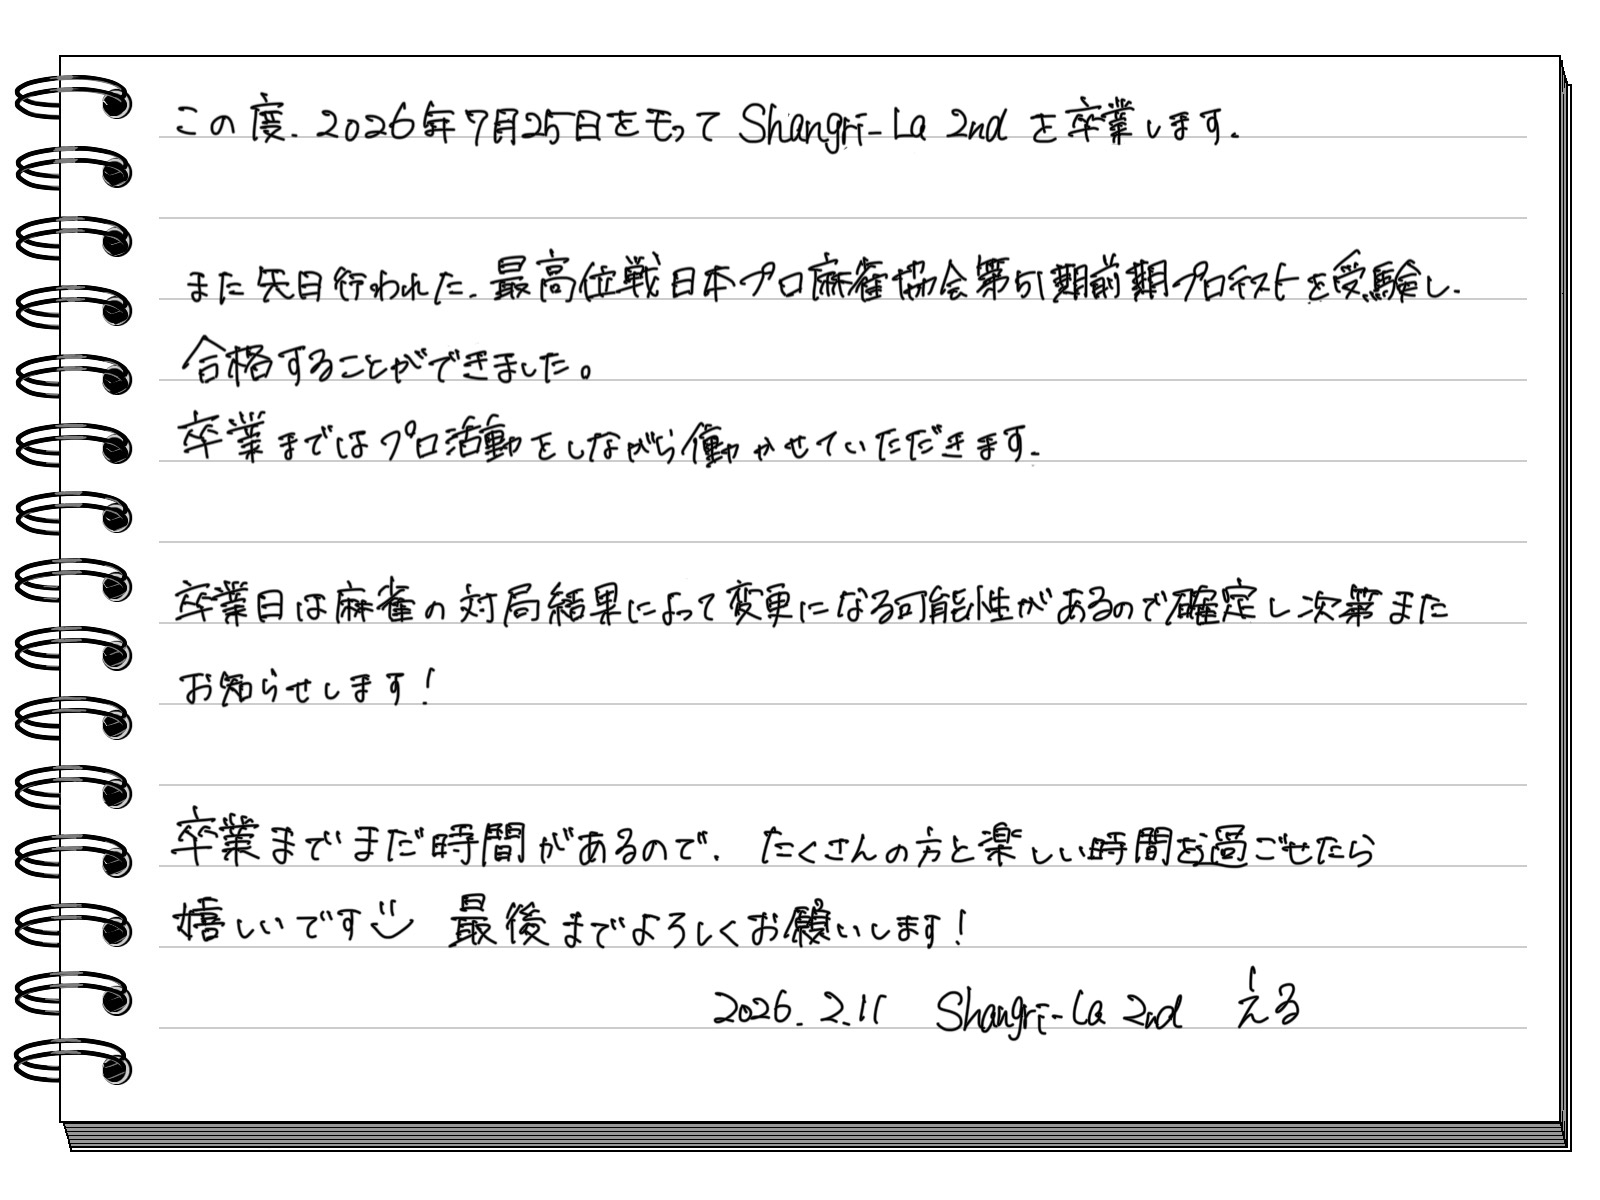 この度、2026年7月25日をもって Shangri-La 2nd を卒業します。
また先日行われた、最高位戦日本プロ麻雀協会第51期前期プロテストを受験し、
合格することができました。
卒業まではプロ活動をしながら働かせていただきます。
卒業日は麻雀の対局結果によって変更になる可能性があるので確定し次第また
お知らせします！
卒業までまだ時間があるので、たくさんの方と楽しい時間を過ごせたら
嬉しいです 最後までよろしくお願いします！
2026.2.11 Shangri-La 2nd える